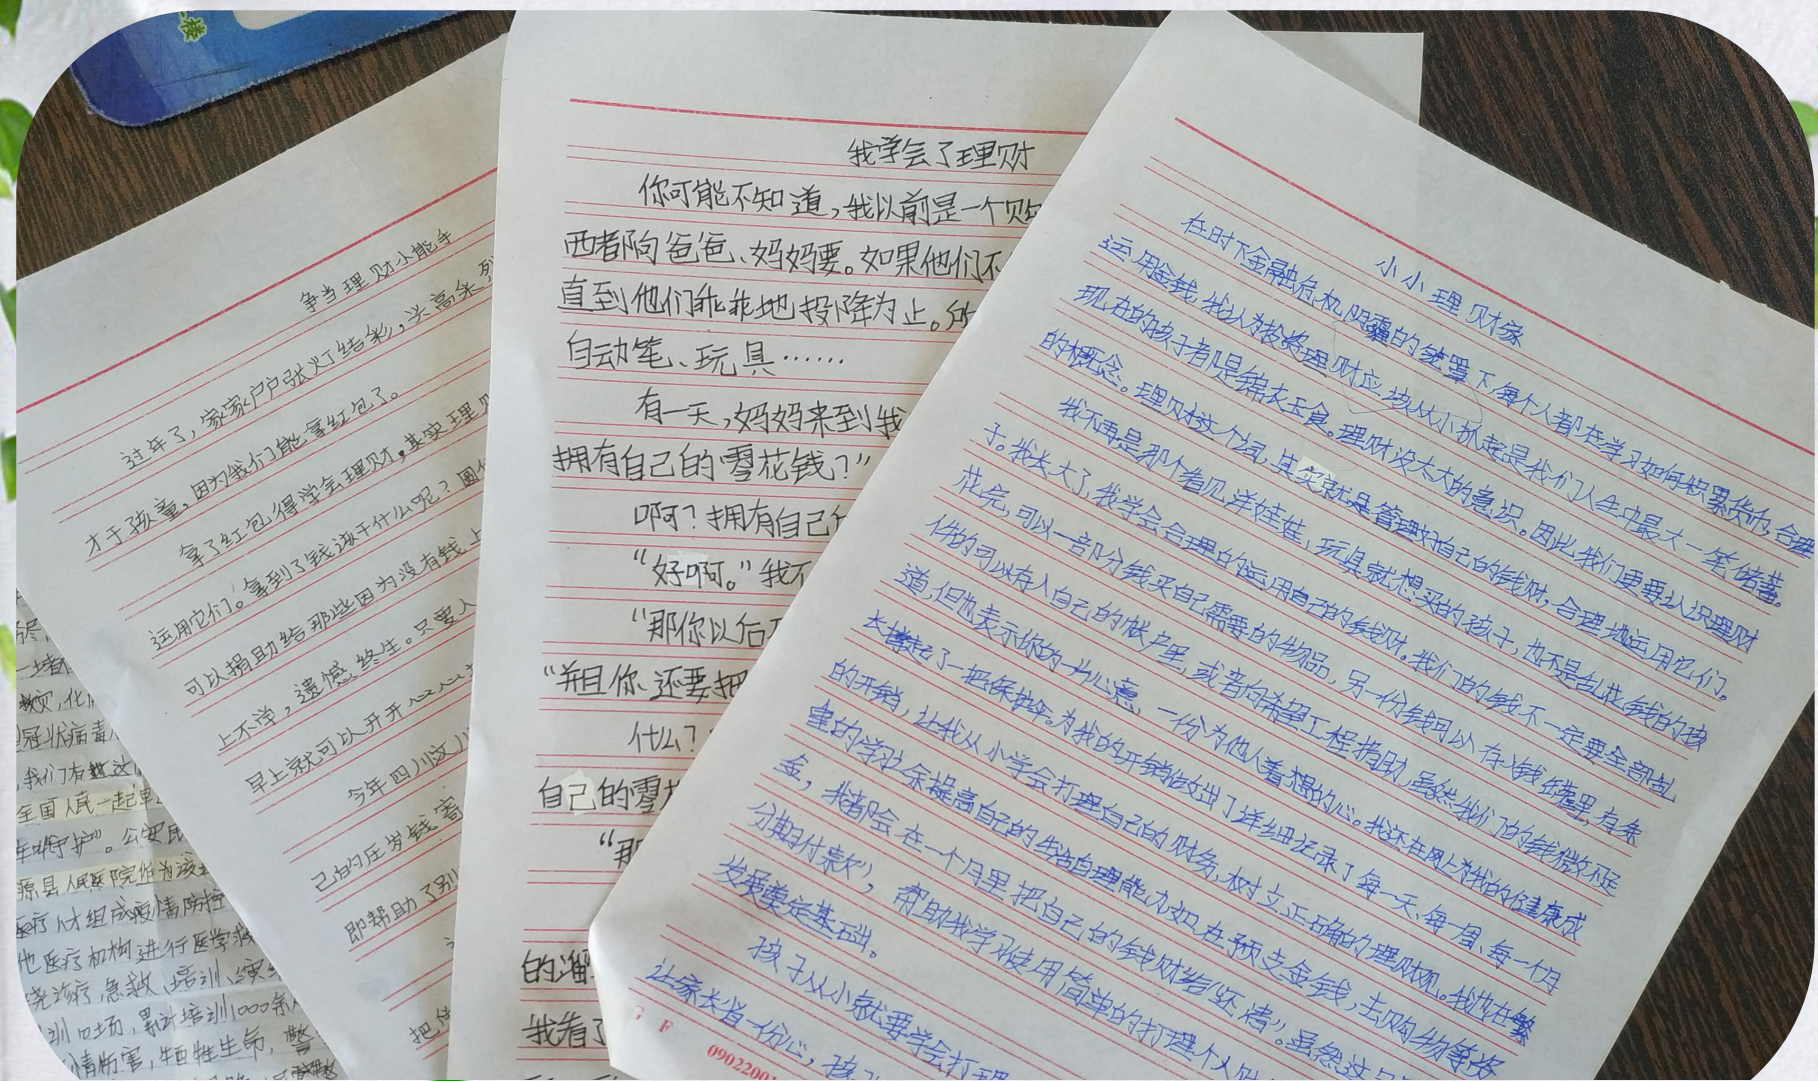 争当理财小能手
过年了，家家户户张灯结彩，兴高采烈
才于孩童，因为我们能拿红包了。
拿了红包得学会理财，其实理财
运用它们。拿到了钱该干什么呢？圆
可以捐助给那些因为没有钱上
上不学，遗憾终生。只要人
早上就可以开开心心
今年四川
己的压岁钱寄
即帮助了别
把
我学会了理财
你可能不知道，我以前是一个购
西都向爸爸、妈妈要。如果他们不
直到他们乖乖地投降为止。所
自动笔、玩具……
有一天，妈妈来到我
拥有自己的零花钱？”
啊？拥有自己
“好啊。”我不
“那你以后
“并且你还要把
什么？
自己的零
“那
的
我看了
小小理财家
在时下金融危机阴霾的笼罩下每个人都在学习如何积累货币，合理
运用金钱，我认为投资理财应该从小抓起是我们人生中最大一笔储蓄。
现在的孩子都是锦衣玉食。理财没太大的意识。因此我们更要认识理财
的概念。理财这个词，其实就是管理好自己的钱财，合理地运用它们。
我不再是那个看见洋娃娃，玩具就想买的孩子，也不是乱花钱的孩
子。我长大了，我学会合理的运用自己的钱财。我们的钱不一定要全部乱
花完，可以一部分钱买自己需要的物品，另一份钱可以存入钱罐里，有条
件的可以存入自己的帐户里，或者向希望工程捐助，虽然我们的钱微不足
道，但也表示你的一片心意，一份为他人着想的心。我还在网上为我的健康成
长撑起了一把保护伞。为我的开销做出了详细记录了每一天，每一周、每一个月
的开销，让我从小学会打理自己的财务，树立正确的理财观。我也在繁
重的学习之余提高自己的生活自理能力如，在预支金钱，主购物等资
金，我都会在一个月里把自己的钱财给“还清”。虽然这只
分期付款”，帮助我学习使用简单的打理个人财
发展奠定基础。
孩子从小就要学会打理
让家长省一份心，孩
G F
0902200
冠状病毒
，我们有
全国人民一起
守护”。公安民
源县人民医院作为该
医疗人才组成疫情防控
他医疗机构进行医学救
诊疗、急救、培训、演
训10场，累计培训1000余
情伤害，牺牲生命，警